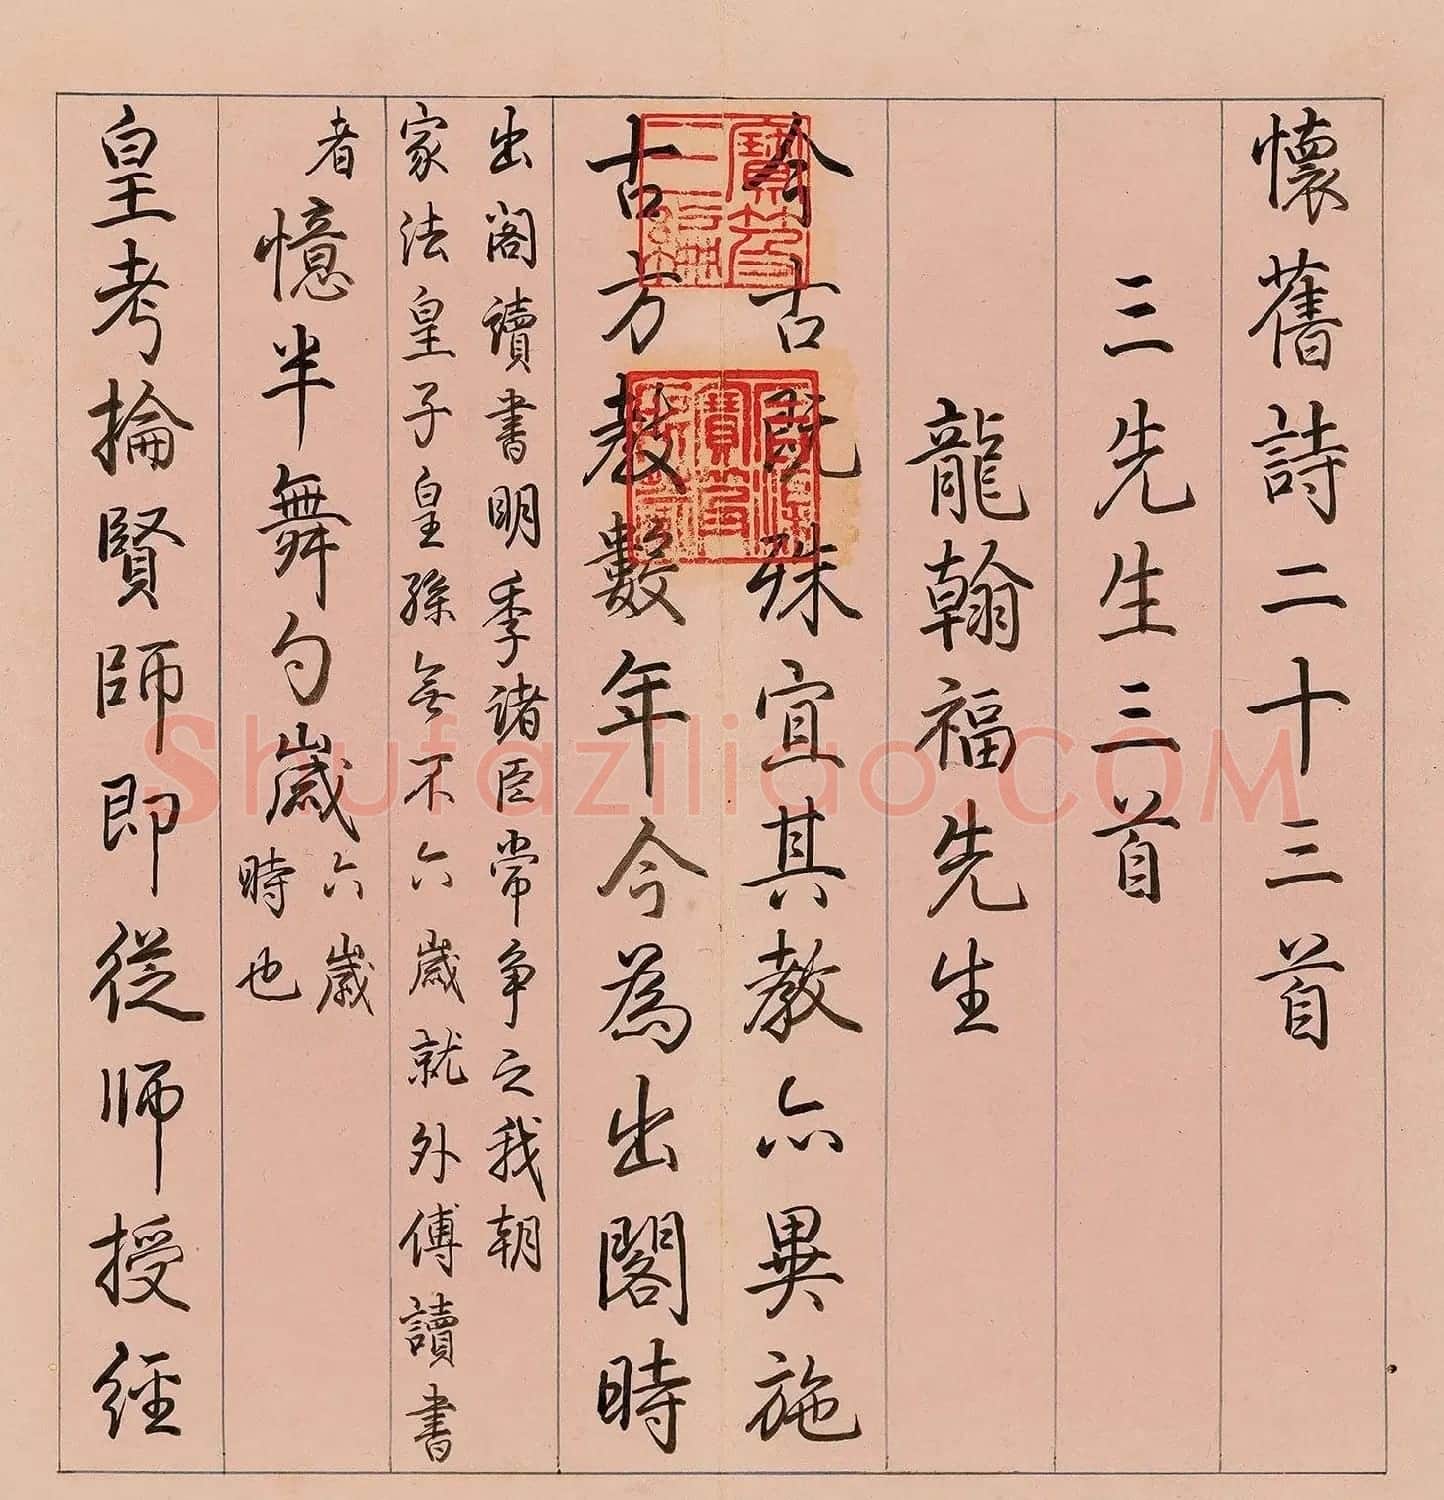 懷舊詩二十三首
三先生三首
龍翰福先生
今古既殊宜其教亦異施
古方教數年今為出閣時
出閣讀書明季諸臣常爭之我朝
家法皇子皇孫無不六歲就外傅讀書
者
憶半舞勺歲
六歲
時也
皇考掄賢師即從師授經
寶笈
三編
石渠
寶笈
所藏
Shufaziliao.COM